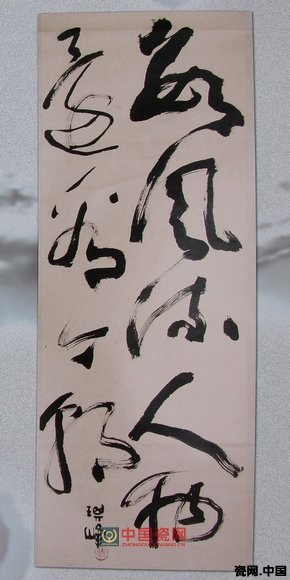 数风流人物
还看今朝
中国瓷网
ZHONGGUOCIWANG.CN
瓷网.中国